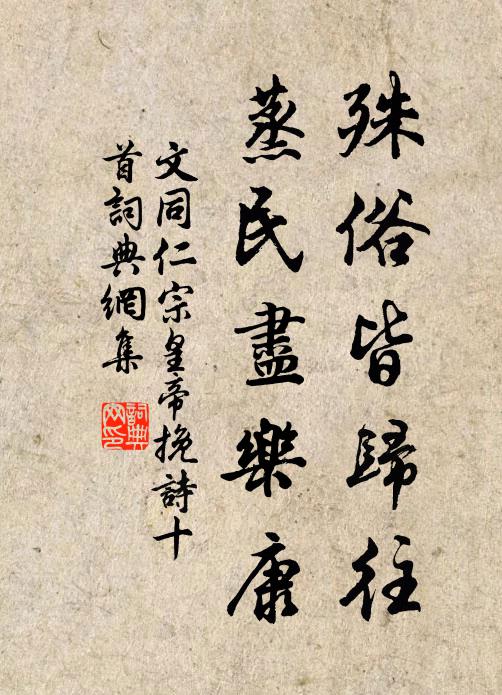 殊俗皆歸往
蒸民盡樂康
文同仁宗皇帝挽詩十
首詞典網集
詞典網印